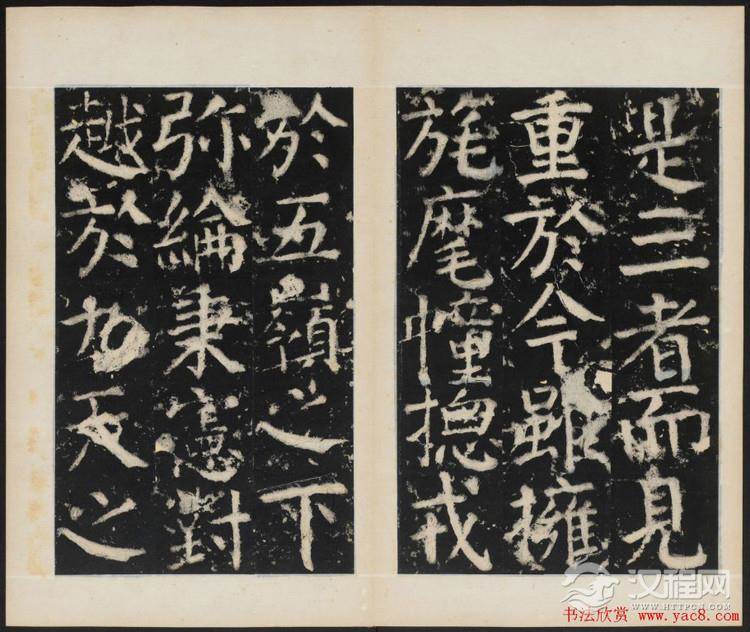 是三者而見
重於今雖擁
旄麾幢揔戎
於五嶺之下
弥綸秉憲對
越於
天之
汉程网
WWW.HTTPCN.COM
书法欣赏 www.yac8.com